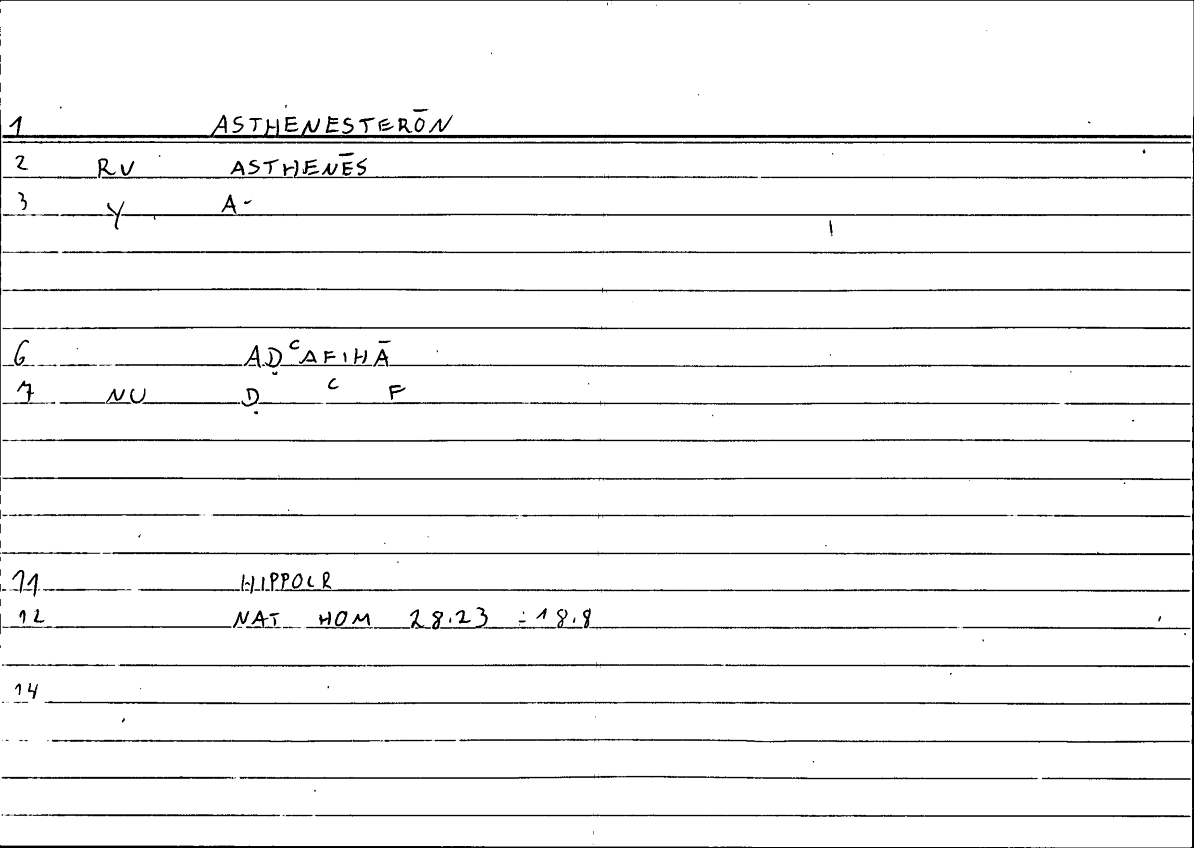 1 ASTHENESTERŌN
2 RV ASTHENĒS
3 Y A-
6 AḌᶜAFIHĀ
7 NU Ḍ ᶜ F
11 HIPPOCR
12 NAT HOM 28.23 = 18.8
14